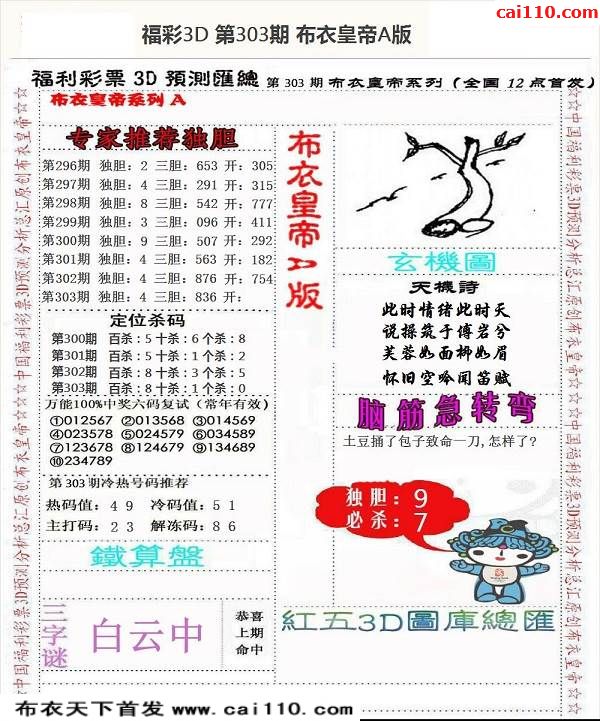 cai110.com
福彩3D 第303期 布衣皇帝A版
福利彩票 3D 預測匯總 第 303 期布衣皇帝系列（全国 12 点首发）
布衣皇帝系列 A
专家推荐独胆
第296期 独胆：2 三胆：653 开：305
第297期 独胆：4 三胆：291 开：315
第298期 独胆：8 三胆：542 开：777
第299期 独胆：3 三胆：096 开：411
第300期 独胆：9 三胆：507 开：292
第301期 独胆：4 三胆：563 开：182
第302期 独胆：4 三胆：876 开：754
第303期 独胆：4 三胆：836 开：
定位杀码
第300期 百杀：5 十杀：6 个杀：8
第301期 百杀：5 十杀：1 个杀：2
第302期 百杀：8 十杀：3 个杀：5
第303期 百杀：8 十杀：1 个杀：0
万能100%中奖六码复试（常年有效）
①012567 ②013568 ③014569
④023578 ⑤024579 ⑥034589
⑦123678 ⑧124679 ⑨134689
⑩234789
第 303 期冷热号码推荐
热码值：4 9 冷码值：5 1
主打码：2 3 解冻码：8 6
鐵算盤
三字谜
白云中
恭喜
上期
命中
布衣皇帝A版
玄機圖
天機詩
此时情绪此时天
说操筑于傅岩兮
芙蓉如面柳如眉
怀旧空吟闻笛赋
脑筋急转弯
土豆捅了包子致命一刀,怎样了?
独胆：9
必杀：7
紅五3D圖庫總匯
☆☆中国福利彩票3D预测分析总汇原创布衣皇帝☆☆
☆☆中国福利彩票3D预测分析总汇原创布衣皇帝☆☆
布衣天下首发 www.cai110.com